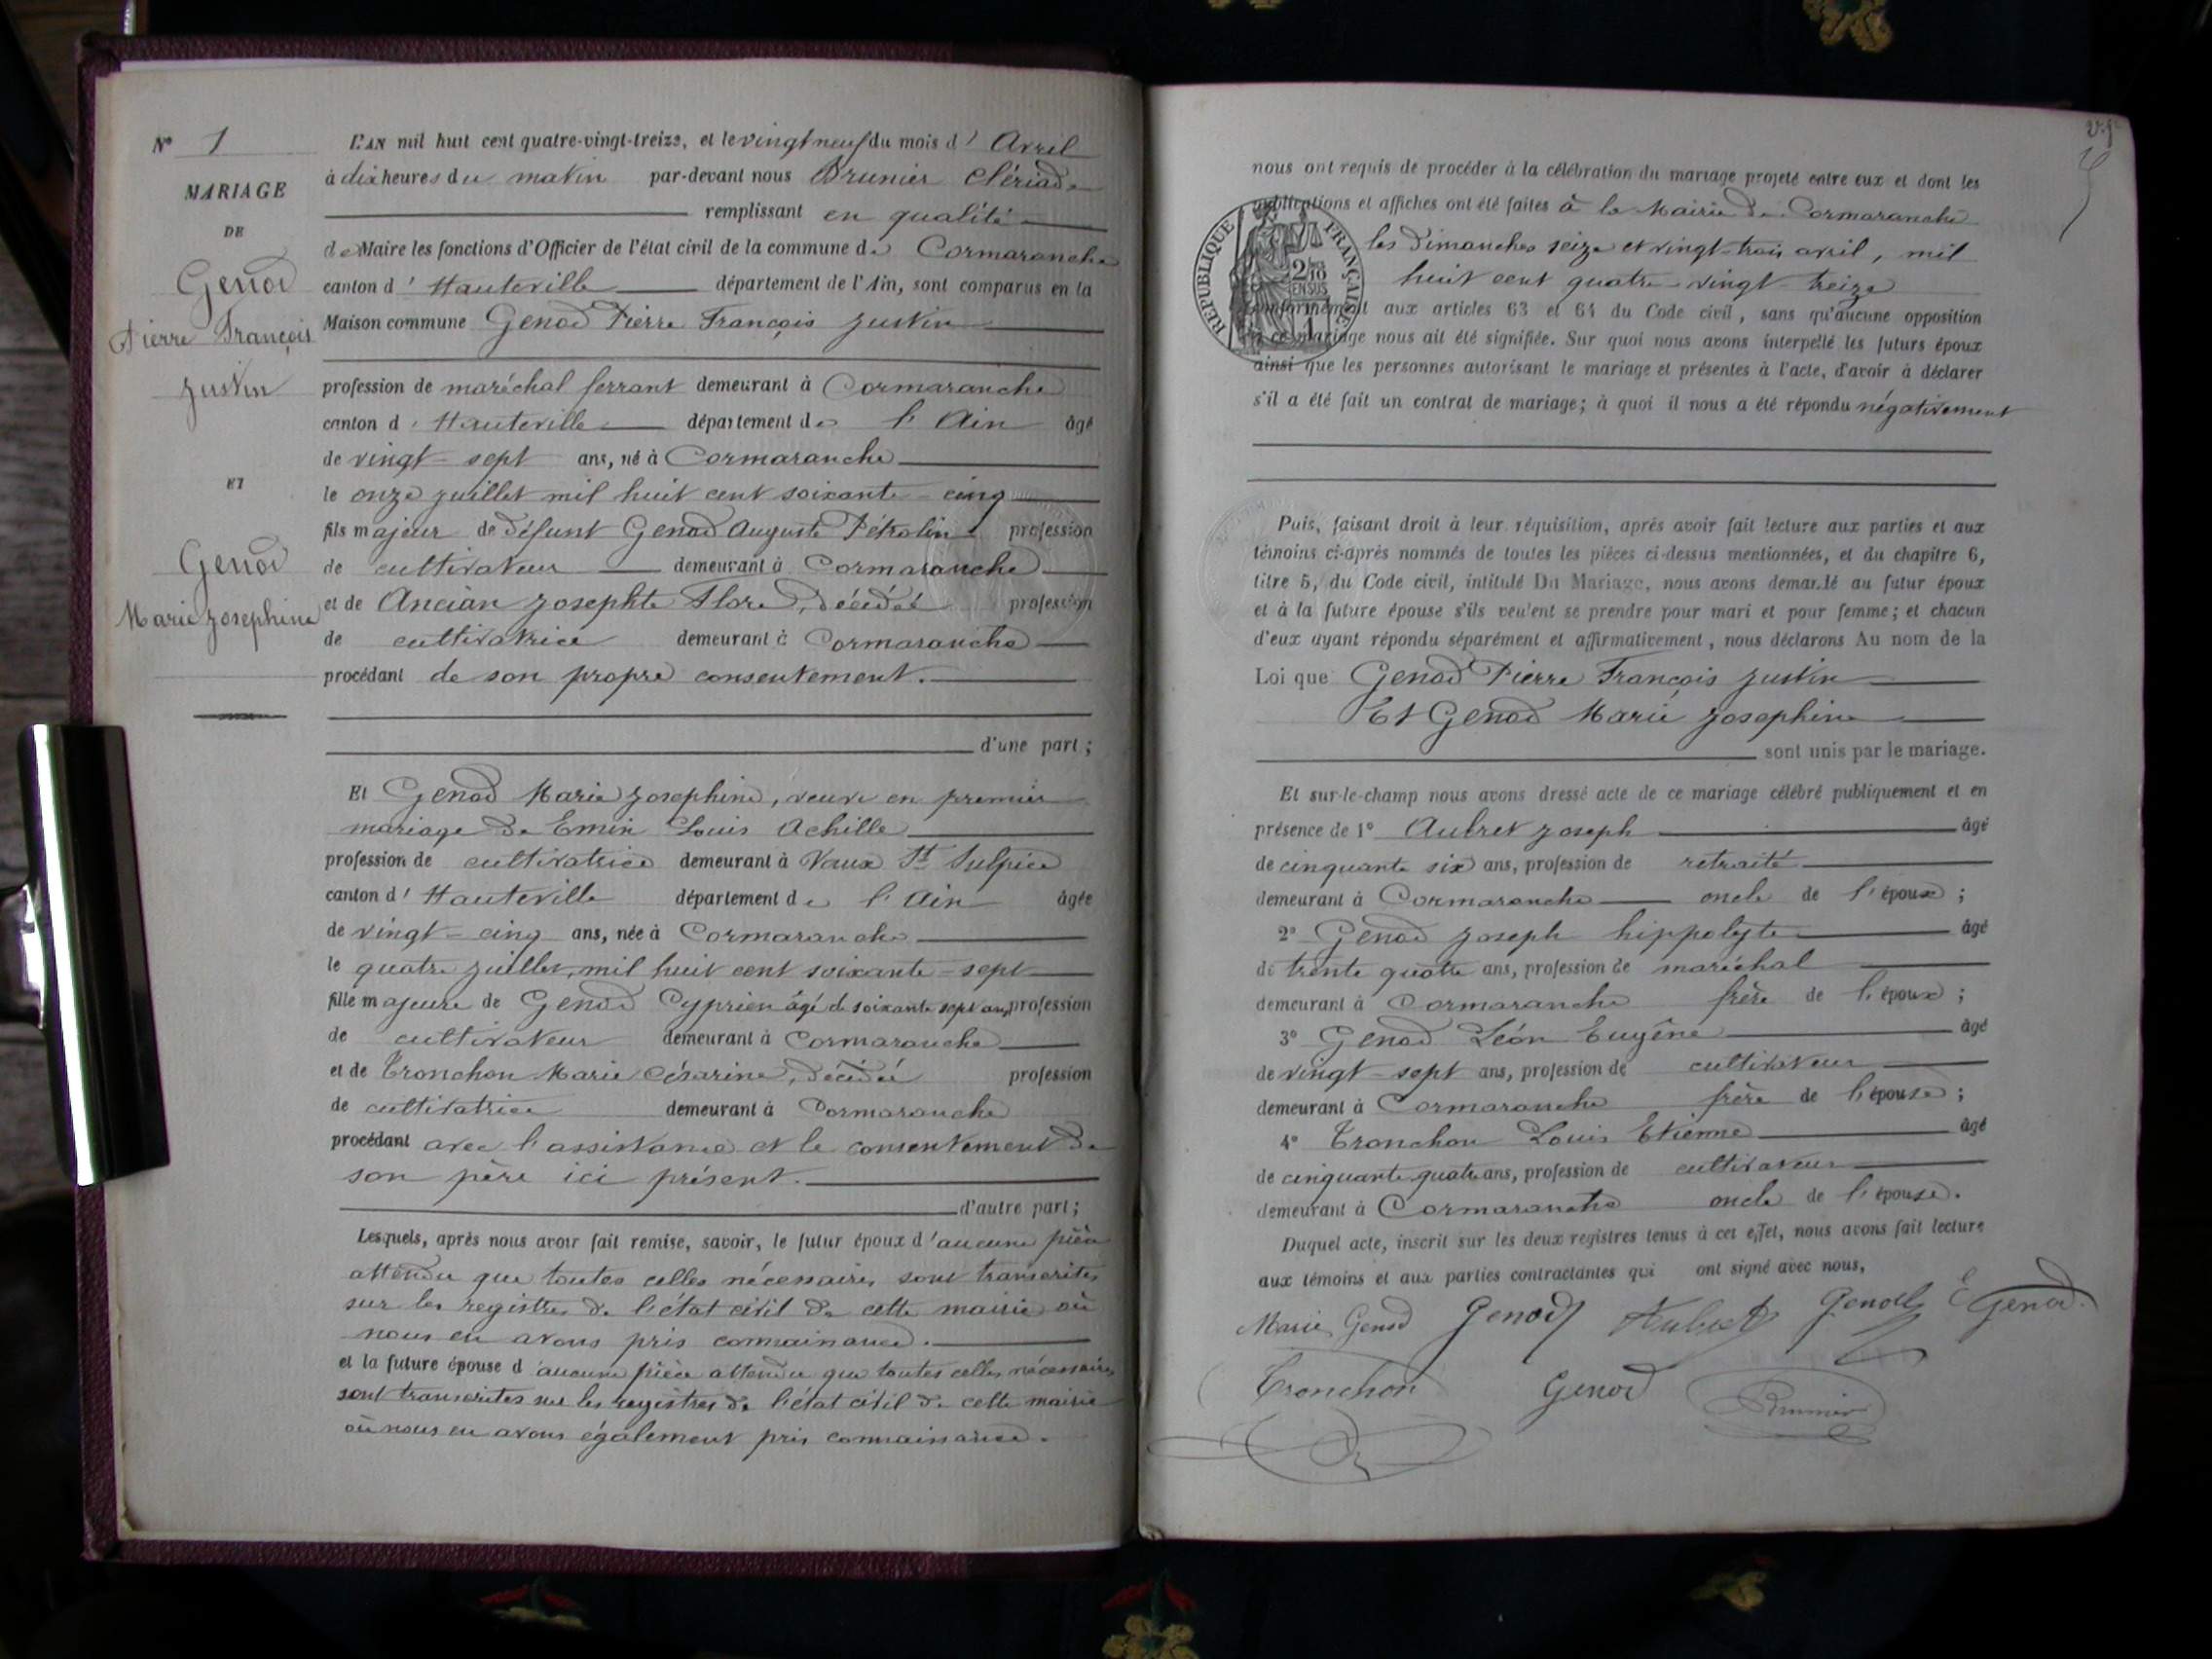 N° 1
MARIAGE
DE
Genod
Pierre François
Justin
ET
Genod
Marie Josephine
L'AN mil huit cent quatre-vingt-treize, et le vingt neuf du mois d'Avril
à dix heures du matin par-devant nous Brunier Clériade
remplissant en qualité
de Maire les fonctions d'Officier de l'état civil de la commune de Cormaranche
canton d'Hauteville département de l'Ain, sont comparus en la
Maison commune Genod Pierre François Justin
profession de maréchal ferrant demeurant à Cormaranche
canton d'Hauteville département de l'Ain âgé
de vingt-sept ans, né à Cormaranche
le onze juillet mil huit cent soixante-cinq
fils majeur de défunt Genod Auguste Pétrolin profession
de cultivateur demeurant à Cormaranche
et de Ancian Josephte Flore, décédée profession
de cultivatrice demeurant à Cormaranche
procédant de son propre consentement.
d'une part;
Et Genod Marie Josephine, veuve en premier
mariage de Emin Louis Achille
profession de cultivatrice demeurant à Vaux St Sulpice
canton d'Hauteville département de l'Ain âgée
de vingt-cinq ans, née à Cormaranche
le quatre juillet, mil huit cent soixante-sept
fille majeure de Genod Cyprien âgé de soixante sept ans, profession
de cultivateur demeurant à Cormaranche
et de Tronchon Marie Césarine, décédée profession
de cultivatrice demeurant à Cormaranche
procédant avec l'assistance et le consentement de
son père ici présent.
d'autre part;
Lesquels, après nous avoir fait remise, savoir, le futur époux d'aucune pièce
attendu que toutes celles nécessaires sont transcrites
sur les registres de l'état civil de cette mairie où
nous en avons pris connaissance.
et la future épouse d'aucune pièce attendu que toutes celles nécessaires
sont transcrites sur les registres de l'état civil de cette mairie
où nous en avons également pris connaissance.
nous ont requis de procéder à la célébration du mariage projeté entre eux et dont les
publications et affiches ont été faites à la Mairie de Cormaranche
les Dimanches seize et vingt-trois avril, mil
huit cent quatre-vingt-treize
RÉPUBLIQUE FRANÇAISE
2/10
EN SUS
conformément aux articles 63 et 64 du Code civil, sans qu'aucune opposition
à ce mariage nous ait été signifiée. Sur quoi nous avons interpellé les futurs époux
ainsi que les personnes autorisant le mariage et présentes à l'acte, d'avoir à déclarer
s'il a été fait un contrat de mariage; à quoi il nous a été répondu négativement
Puis, faisant droit à leur réquisition, après avoir fait lecture aux parties et aux
témoins ci-après nommés de toutes les pièces ci-dessus mentionnées, et du chapitre 6,
titre 5, du Code civil, intitulé Du Mariage, nous avons demandé au futur époux
et à la future épouse s'ils veulent se prendre pour mari et pour femme; et chacun
d'eux ayant répondu séparément et affirmativement, nous déclarons Au nom de la
Loi que Genod Pierre François Justin
Et Genod Marie Josephine
sont unis par le mariage.
Et sur-le-champ nous avons dressé acte de ce mariage célébré publiquement et en
présence de 1° Aubret Joseph âgé
de cinquante six ans, profession de retraité
demeurant à Cormaranche oncle de l'époux;
2° Genod Joseph hippolyte âgé
de trente quatre ans, profession de maréchal
demeurant à Cormaranche frère de l'époux;
3° Genod Léon Eugêne âgé
de vingt-sept ans, profession de cultivateur
demeurant à Cormaranche frère de l'épouse;
4° Tronchon Louis Etienne âgé
de cinquante quatre ans, profession de cultivateur
demeurant à Cormaranche oncle de l'épouse.
Duquel acte, inscrit sur les deux registres tenus à cet effet, nous avons fait lecture
aux témoins et aux parties contractantes qui ont signé avec nous,
Marie Genod Genod Aubret Genod E Genod.
Tronchon Genod Brunier